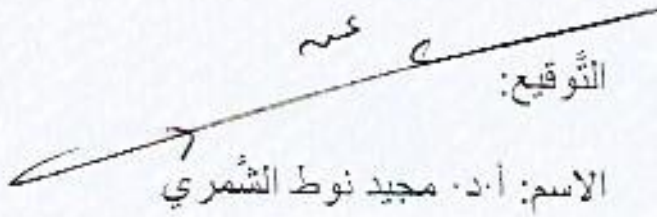 التَّوقيع:
الاسم: أ.د. مجيد نوط الشَّمري